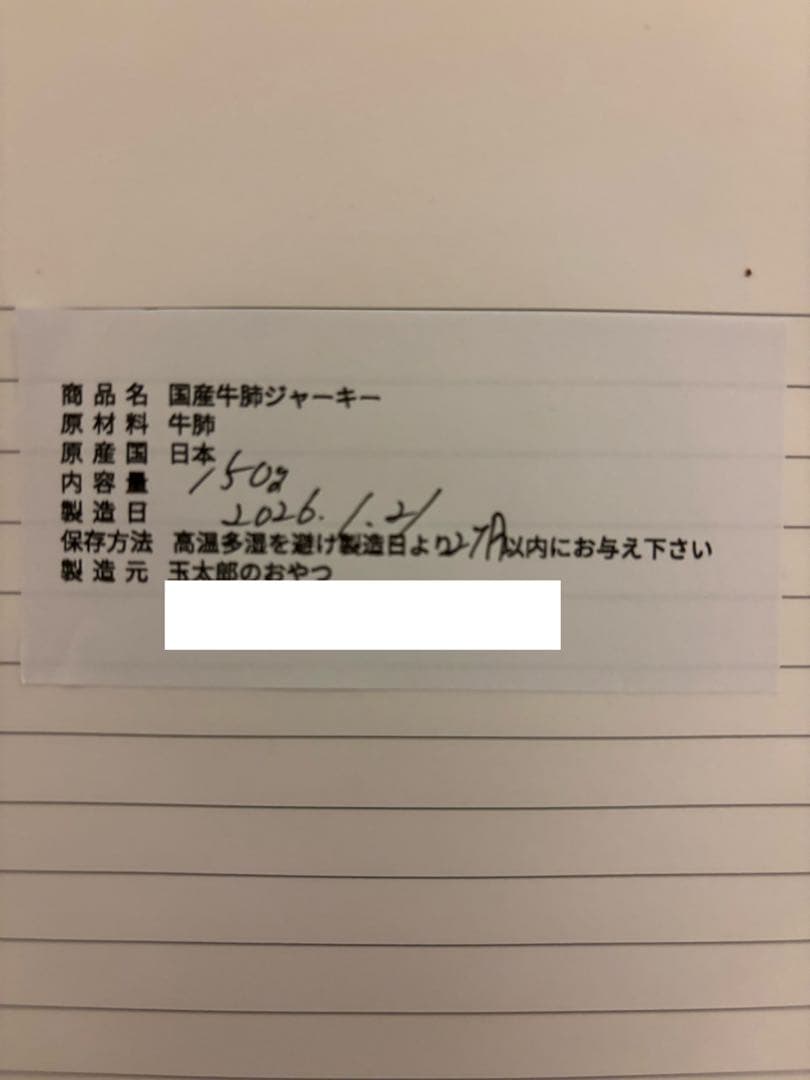 商品名 国産牛肺ジャーキー
原材料 牛肺
原産国 日本
内容量 150g
製造日 2026.1.21
保存方法 高温多湿を避け製造日より2ヶ月以内にお与え下さい
製造元 玉太郎のおやつ